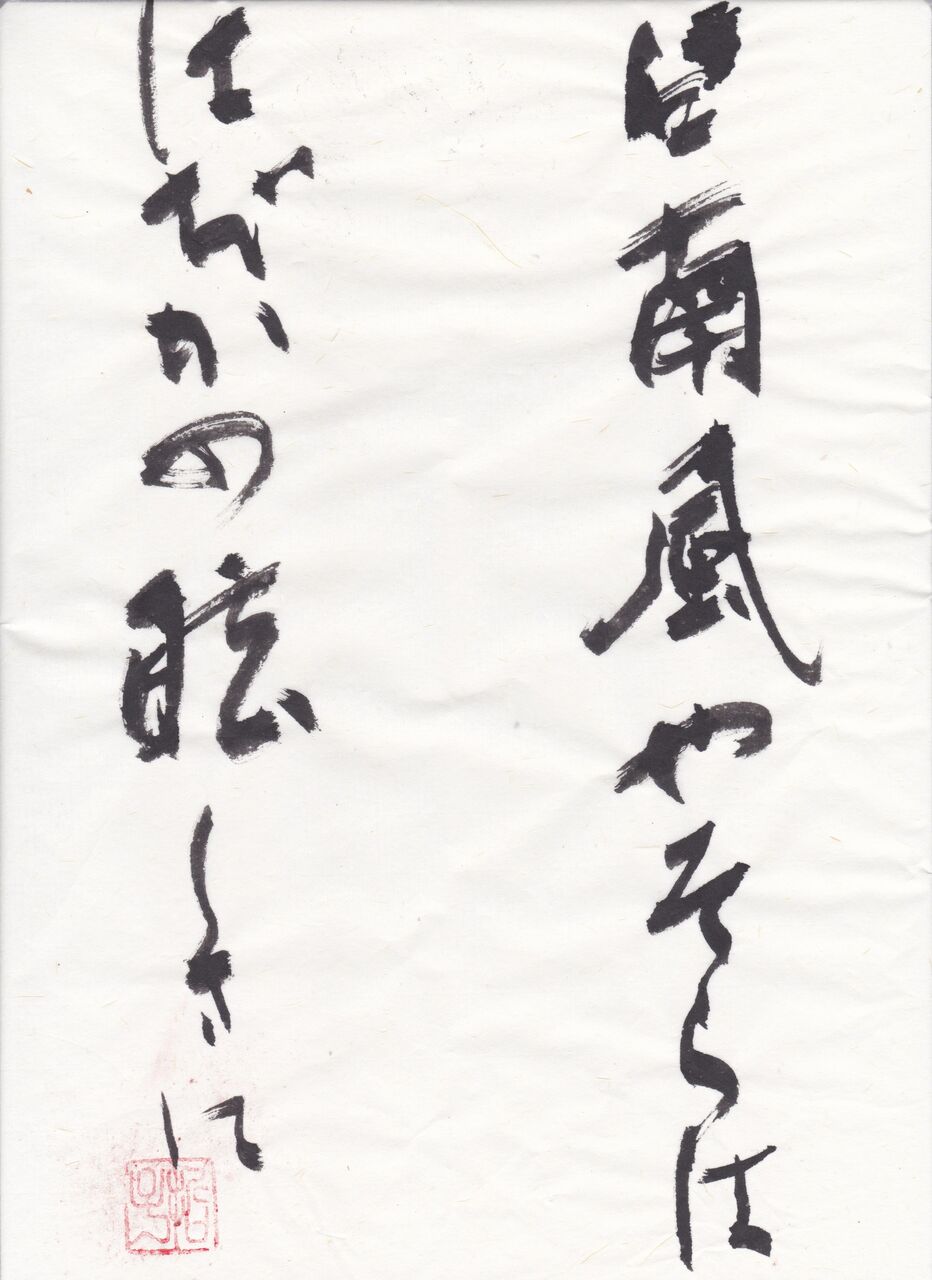 白南風やそらは
はだかの眩しさに